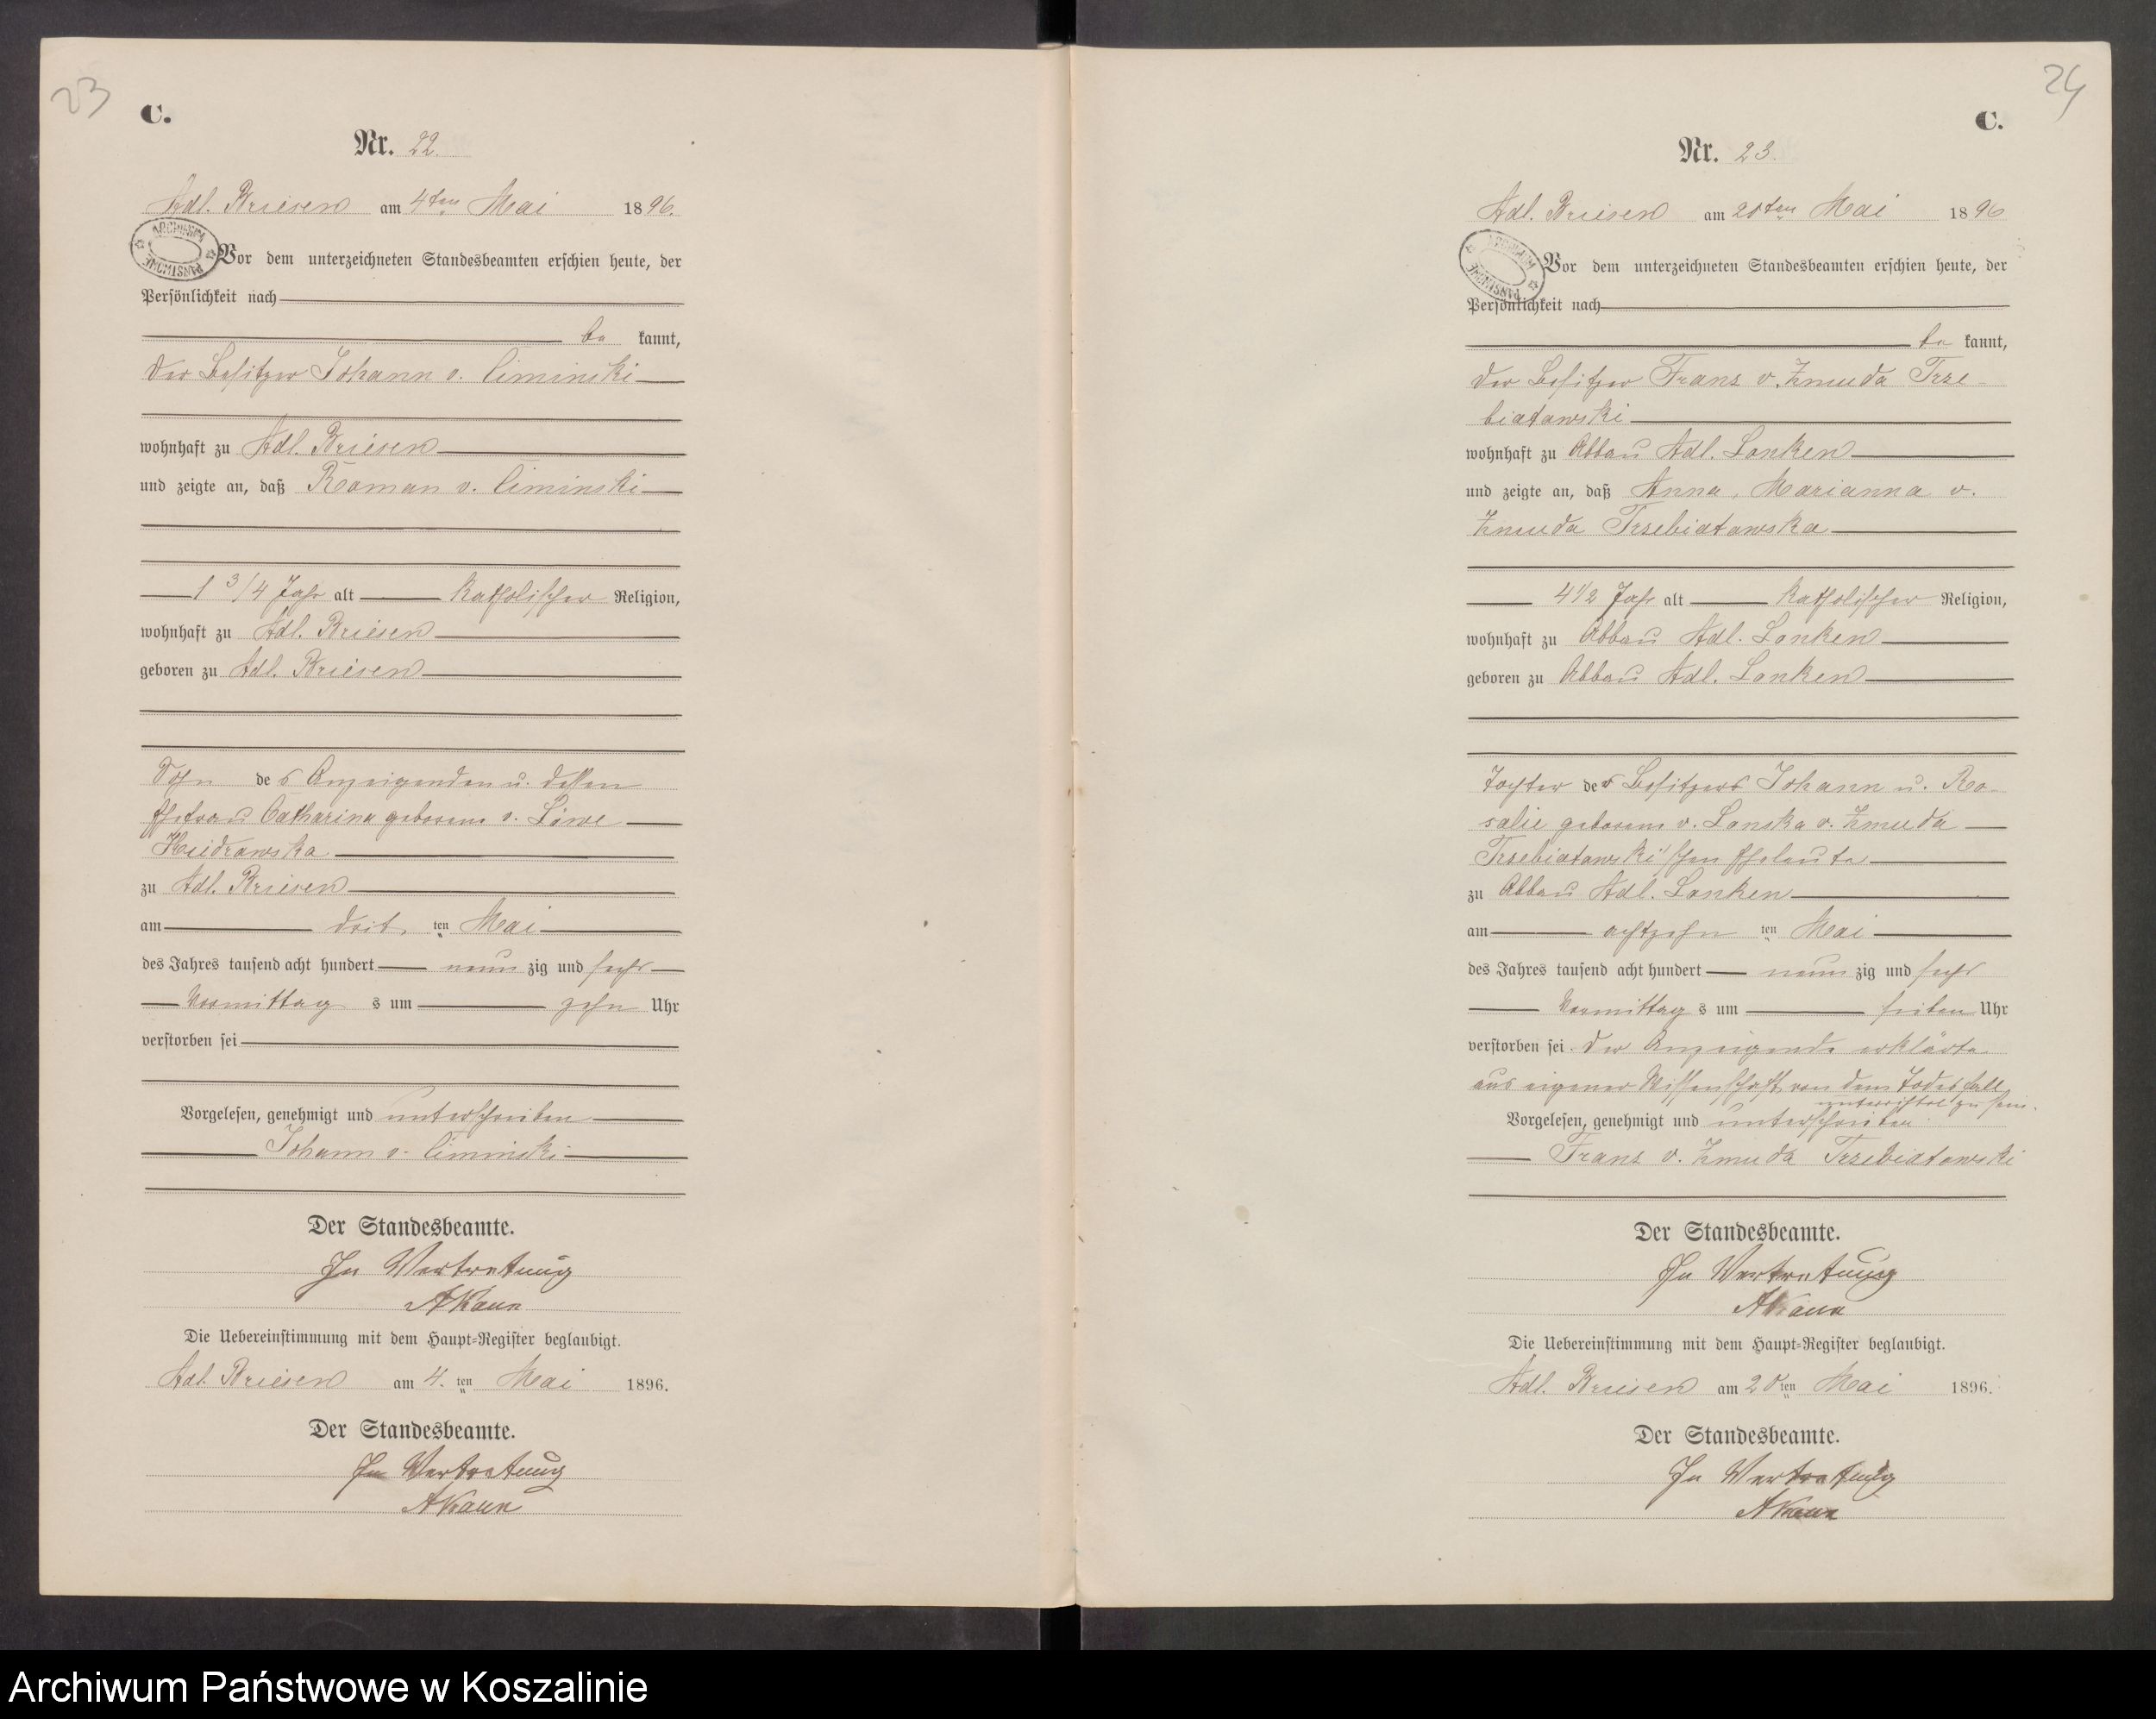 23
C.
Nr. 22.
Adl. Briesen am 4ten Mai 1896.
ARCHIWUM PAŃSTWOWE
Vor dem unterzeichneten Standesbeamten erschien heute, der
Persönlichkeit nach
be kannt,
der Besitzer Johann v. Ciminski
wohnhaft zu Adl. Briesen
und zeigte an, daß Roman v. Ciminski
1 3/4 Jahr alt katholischer Religion,
wohnhaft zu Adl. Briesen
geboren zu Adl. Briesen
Sohn des Anzeigenden u. dessen
Ehefrau Catharina geborene v. Löwe
zu Adl. Briesen
am dritten Mai
des Jahres tausend acht hundert neun zig und sechs
Vormittag s um zehn Uhr
verstorben sei
Vorgelesen, genehmigt und unterschrieben
Johann v. Ciminski
Der Standesbeamte.
In Vertretung
Die Uebereinstimmung mit dem Haupt-Register beglaubigt.
Adl. Briesen am 4. ten Mai 1896.
Der Standesbeamte.
In Vertretung
24
C.
Nr. 23.
Adl. Briesen am 20ten Mai 1896
ARCHIWUM PAŃSTWOWE
Vor dem unterzeichneten Standesbeamten erschien heute, der
Persönlichkeit nach
be kannt,
der Besitzer Franz v. Zmuda Trze-
biatowski
wohnhaft zu Abbau Adl. Lonken
und zeigte an, daß Anna, Marianna v.
Zmuda Trzebiatowska
4 1/2 Jahr alt katholischer Religion,
wohnhaft zu Abbau Adl. Lonken
geboren zu Abbau Adl. Lonken
Tochter der Besitzer Johann u. Ro-
salie geborene v. Lonska v. Zmuda
Trzebiatowski'schen Eheleute
zu Abbau Adl. Lonken
am achtzehn ten Mai
des Jahres tausend acht hundert neun zig und sechs
Vormittag s um sieben Uhr
verstorben sei. Der Anzeigende erklärte
aus eigener Wissenschaft von dem Todesfall
unterrichtet zu sein.
Vorgelesen, genehmigt und unterschrieben
Franz v. Zmuda Trzebiatowski
Der Standesbeamte.
In Vertretung
Die Uebereinstimmung mit dem Haupt-Register beglaubigt.
Adl. Briesen am 20 ten Mai 1896.
Der Standesbeamte.
In Vertretung
Archiwum Państwowe w Koszalinie